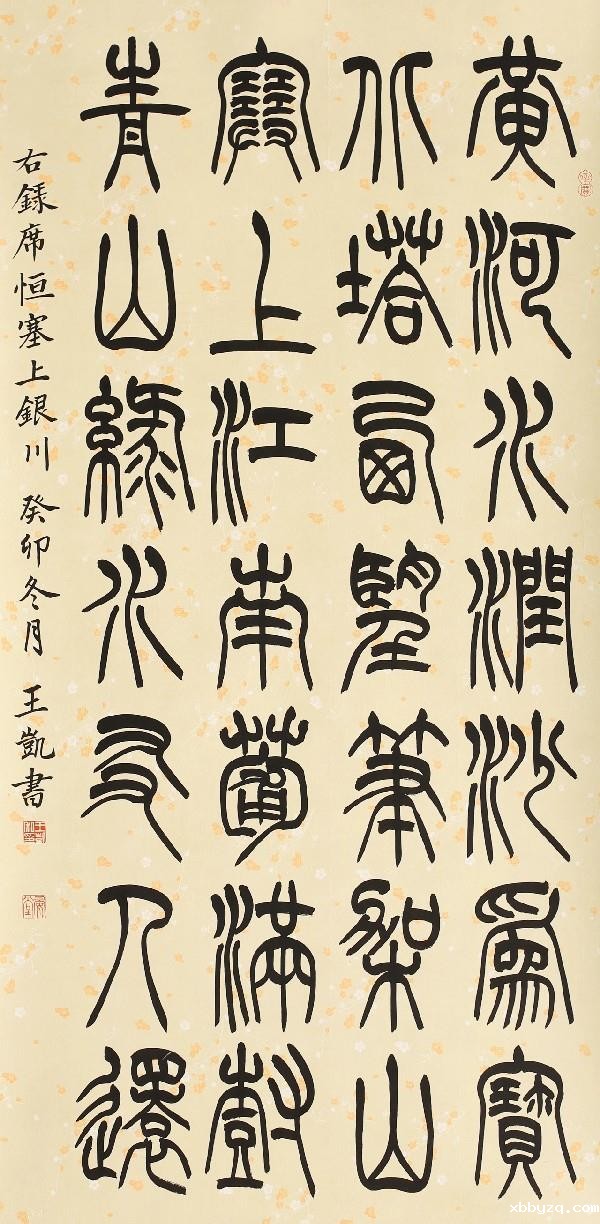 黃河水潤沙爲寶
北塔西望筆架山
塞上江南春滿尌
青山綠水友人還
右錄席恒塞上銀川 癸卯冬月 王凱書
xbbyzq.com